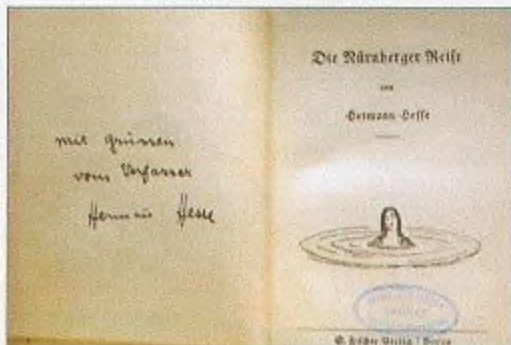 mit Grüssen
vom Verfasser
Hermann Hesse
Die Nürnberger Reise
von
Hermann Hesse
S. Fischer Verlag / Berlin